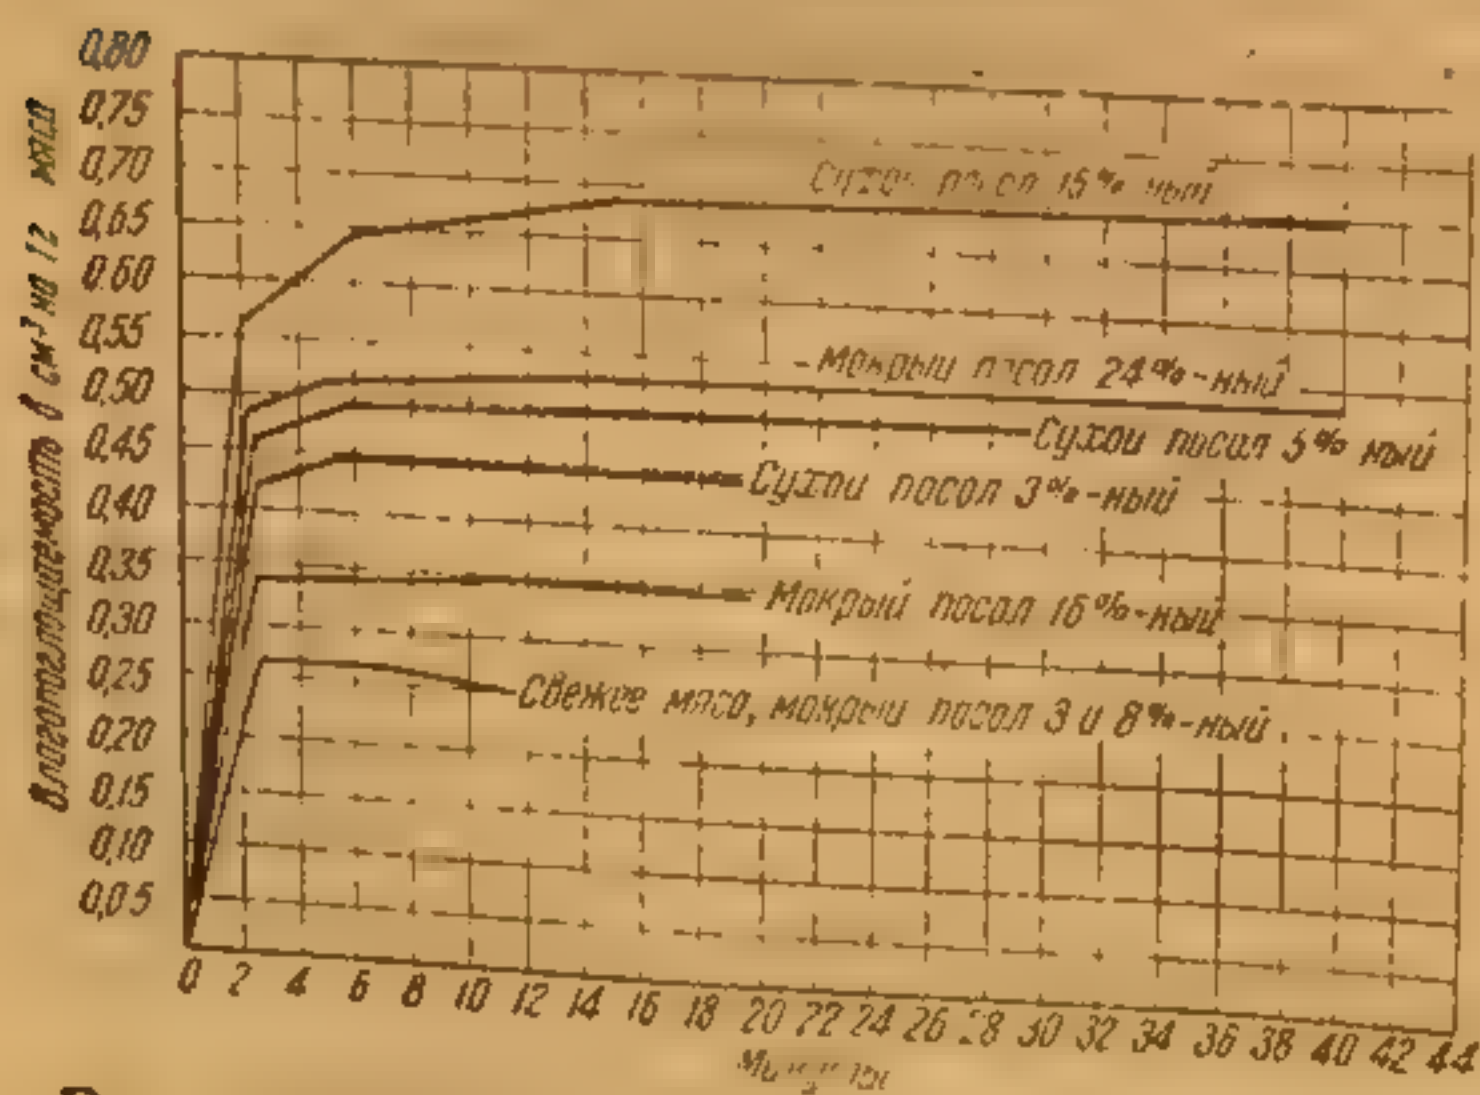 Влагопоглощаемость в см³ на 1г мяса
0,80
0,75
0,70
0,65
0,60
0,55
0,50
0,45
0,40
0,35
0,30
0,25
0,20
0,15
0,10
0,05
Сухой посол 15%-ный
Мокрый посол 24%-ный
Сухой посол 5%-ный
Сухой посол 3%-ный
Мокрый посол 16%-ный
Свежее мясо, мокрый посол 3 и 8%-ный
0 2 4 6 8 10 12 14 16 18 20 22 24 26 28 30 32 34 36 38 40 42 44
Минуты